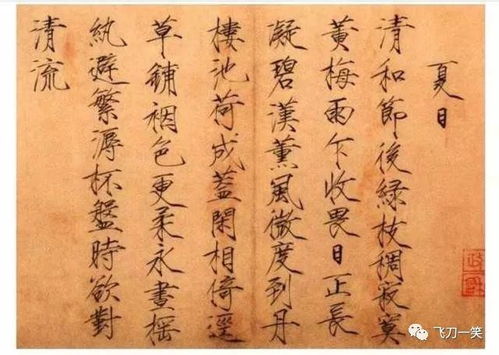 夏日
清和節後綠枝稠寂寞
黃梅雨乍收畏日正長
凝碧漢薰風微度到丹
樓池荷成蓋閑相倚逕
草鋪裀色更柔永晝搖
紈避繁溽杯盤時欲對
清流
飞刀一笑